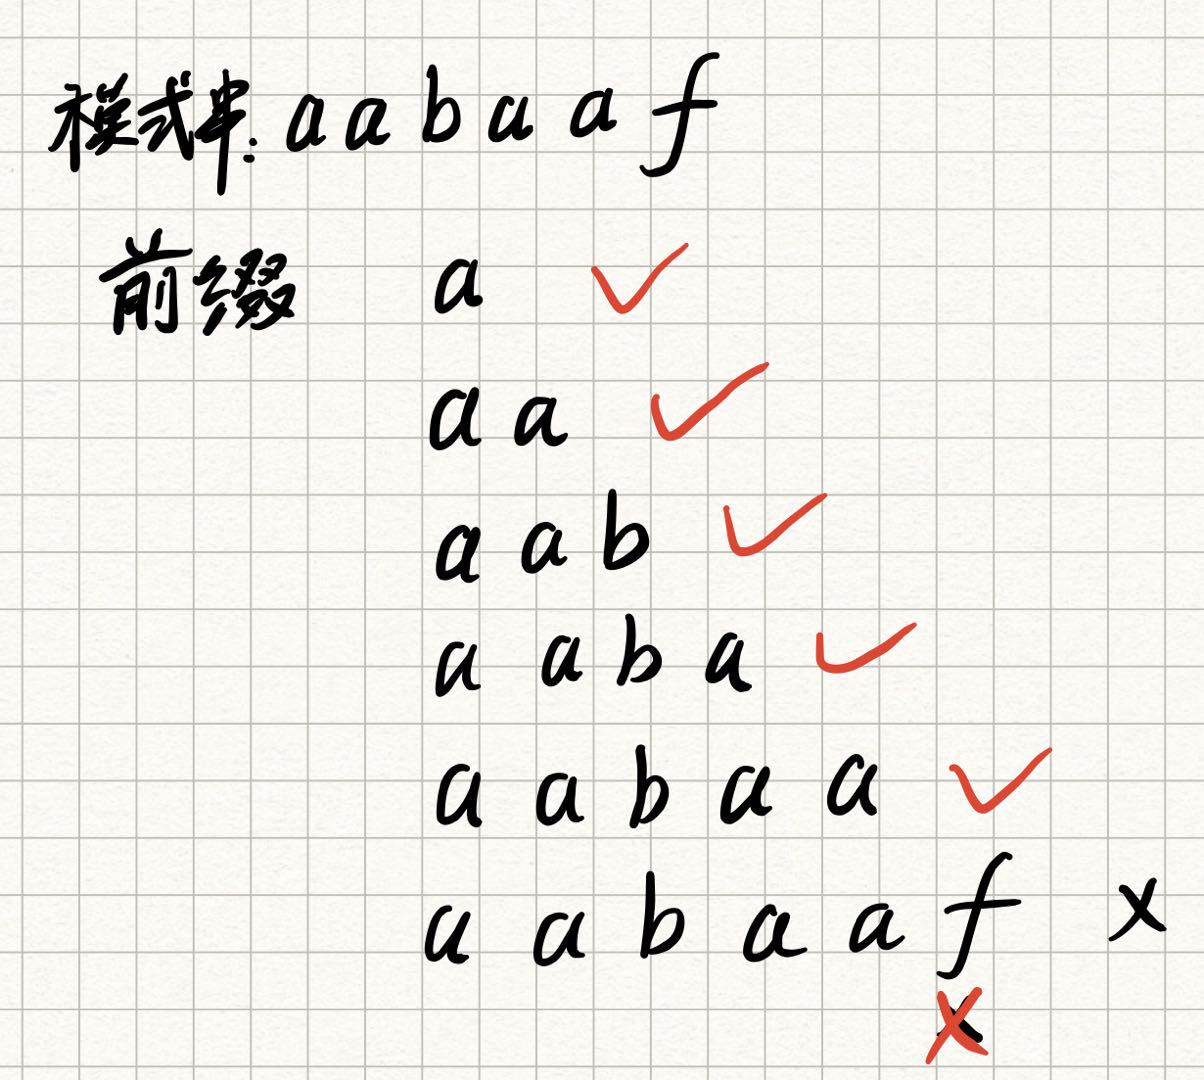 模式串: a a b a a f
前缀 a ✓
a a ✓
a a b ✓
a a b a ✓
a a b a a ✓
a a b a a f x
x